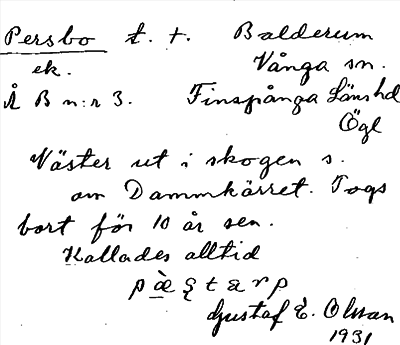 Persbo t. t. Balderum
ek. Vånga sn.
Å B n:r 3. Finspånga Länshd
Ögl
Väster ut i skogen s.
om Dammkärret. Togs
bort för 10 år sen.
Kallades alltid
Gustaf E. Olsson
1931